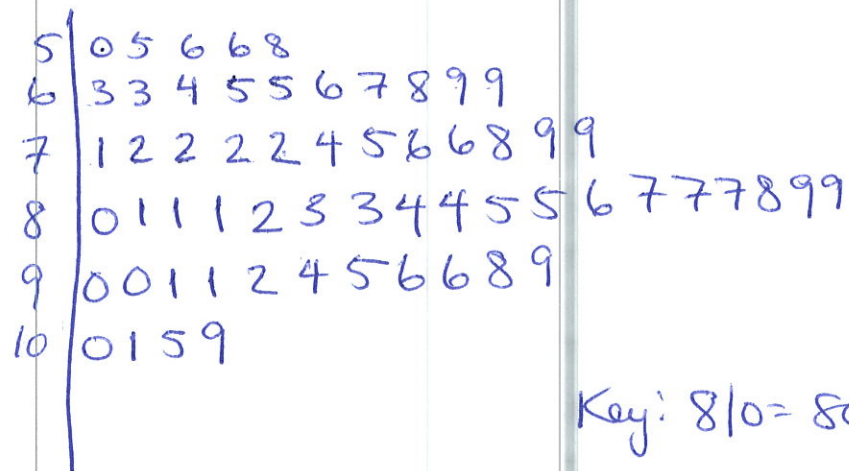 5 | 0 5 6 6 8
6 | 3 3 4 5 5 6 7 8 9 9
7 | 1 2 2 2 2 4 5 6 6 8 9 9
8 | 0 1 1 1 2 3 3 4 4 5 5 6 7 7 7 8 9 9
9 | 0 0 1 1 2 4 5 6 6 8 9
10 | 0 1 5 9
Key: 8|0 = 80